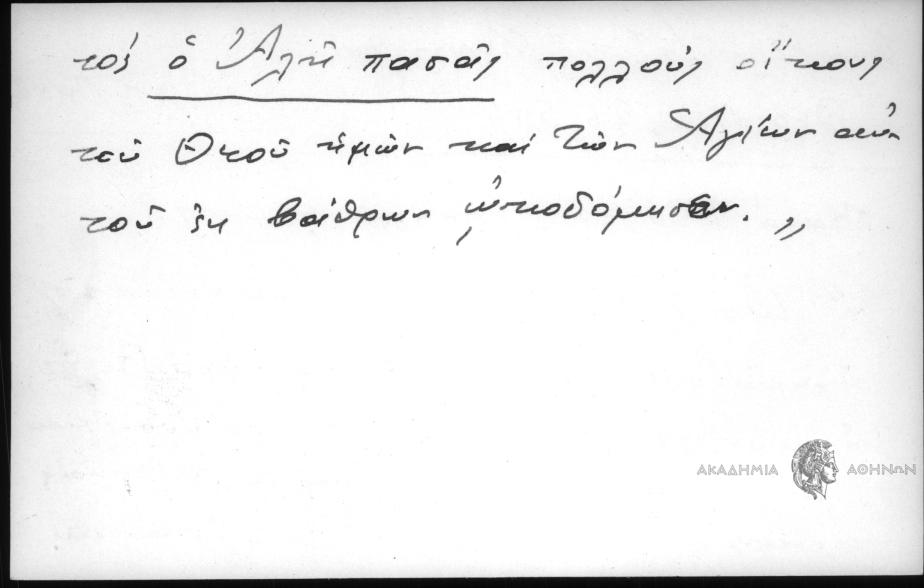 τος ὁ Ἀλῆ πασᾶς πολλοὺς οἴκους
τοῦ Θεοῦ ἡμῶν καὶ τῶν Ἁγίων αὐ-
τοῦ ἐκ βάθρων ᾠκοδόμησεν. „
ΑΚΑΔΗΜΙΑ ΑΘΗΝΩΝ